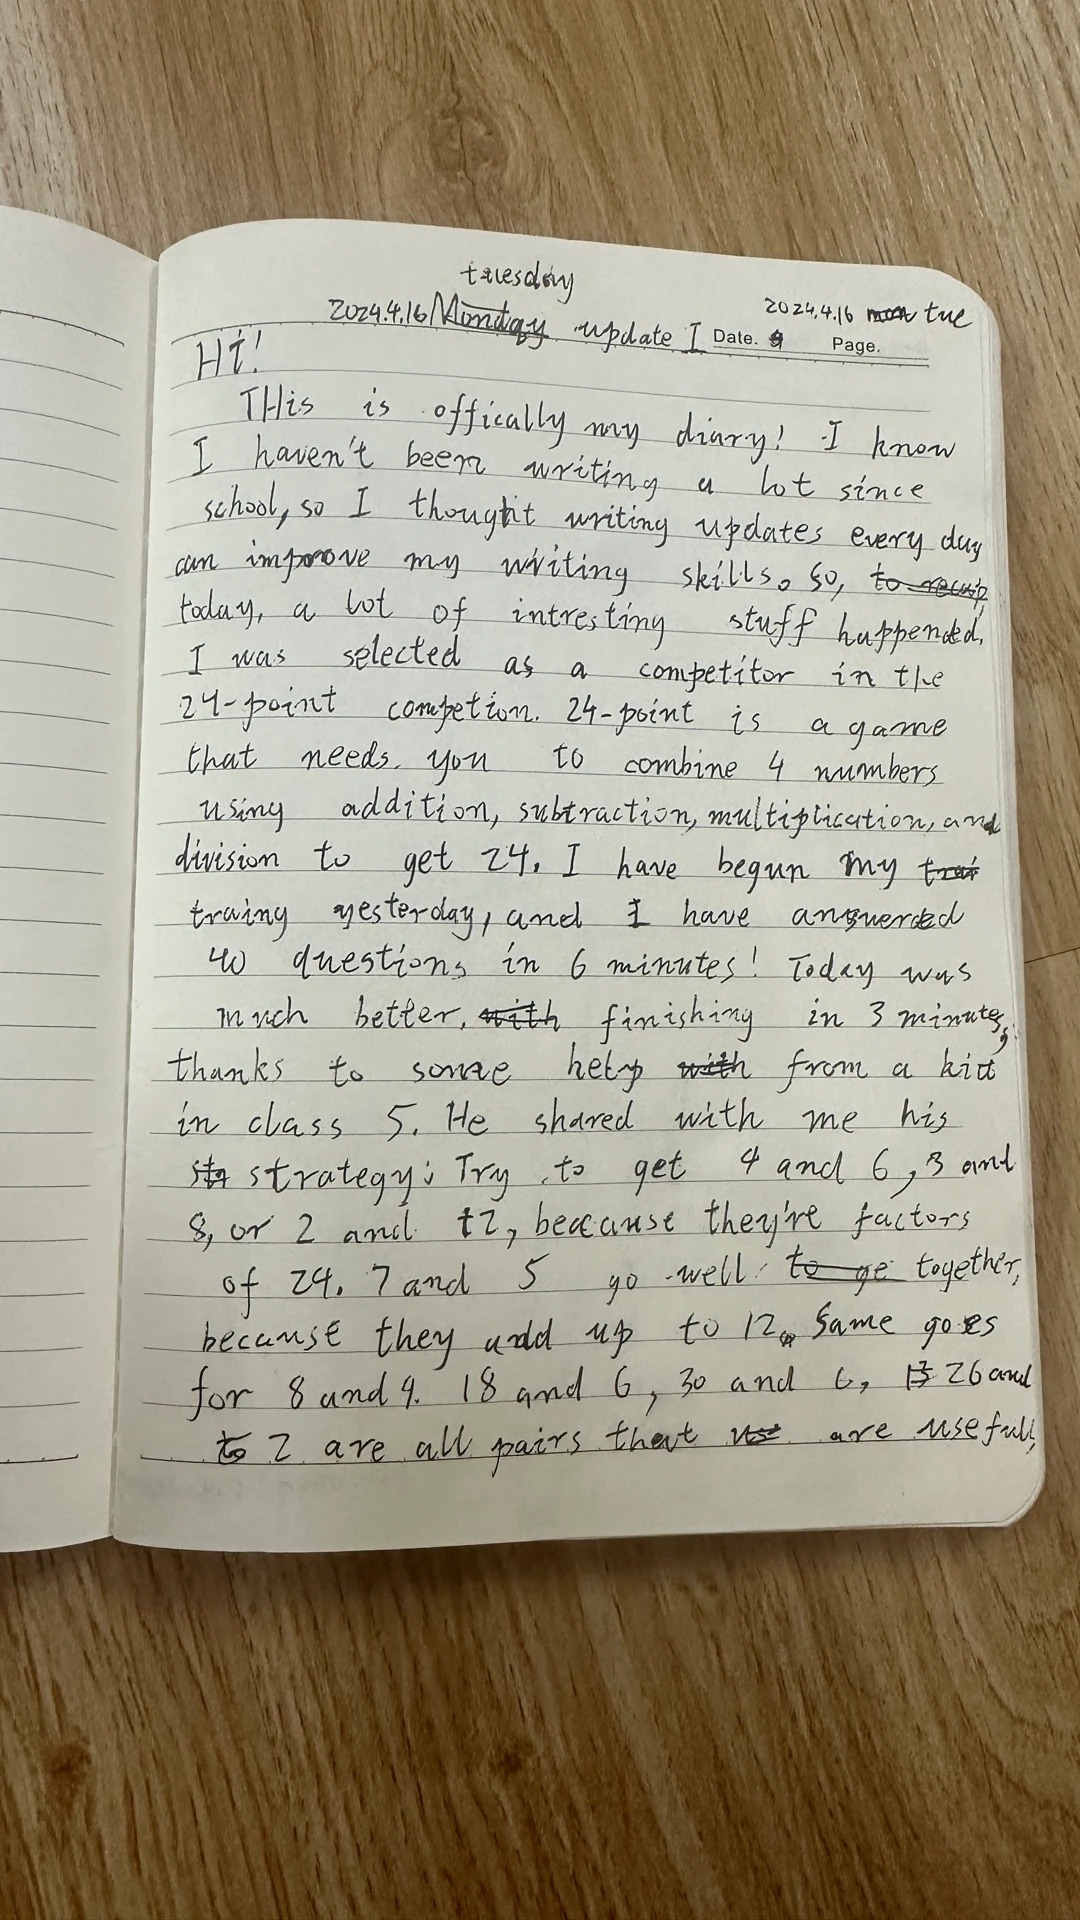 tuesday
2024.4.16 Monday update I
2024.4.16 mon tue
Date. 9 Page.
Hi!
THis is offically my diary! I know
I haven't been writing a lot since
school, so I thought writing updates every day
can improve my writing skills. So, to recap,
today, a lot of intresting stuff happended.
I was selected as a competitor in the
24-point competion. 24-point is a game
that needs you to combine 4 numbers
using addition, subtraction, multiplication, and
division to get 24. I have begun my trai
trainy yesterday, and I have answerded
40 questions in 6 minutes! Today was
much better, with finishing in 3 minutes,
thanks to some help with from a kid
in class 5. He shared with me his
sta strategy: Try to get 4 and 6, 3 and
8, or 2 and 12, because they're factors
of 24. 7 and 5 go well to ge together,
because they add up to 12. Same goes
for 8 and 4. 18 and 6, 30 and 6, 13 26 and
to 2 are all pairs that use are usefull,